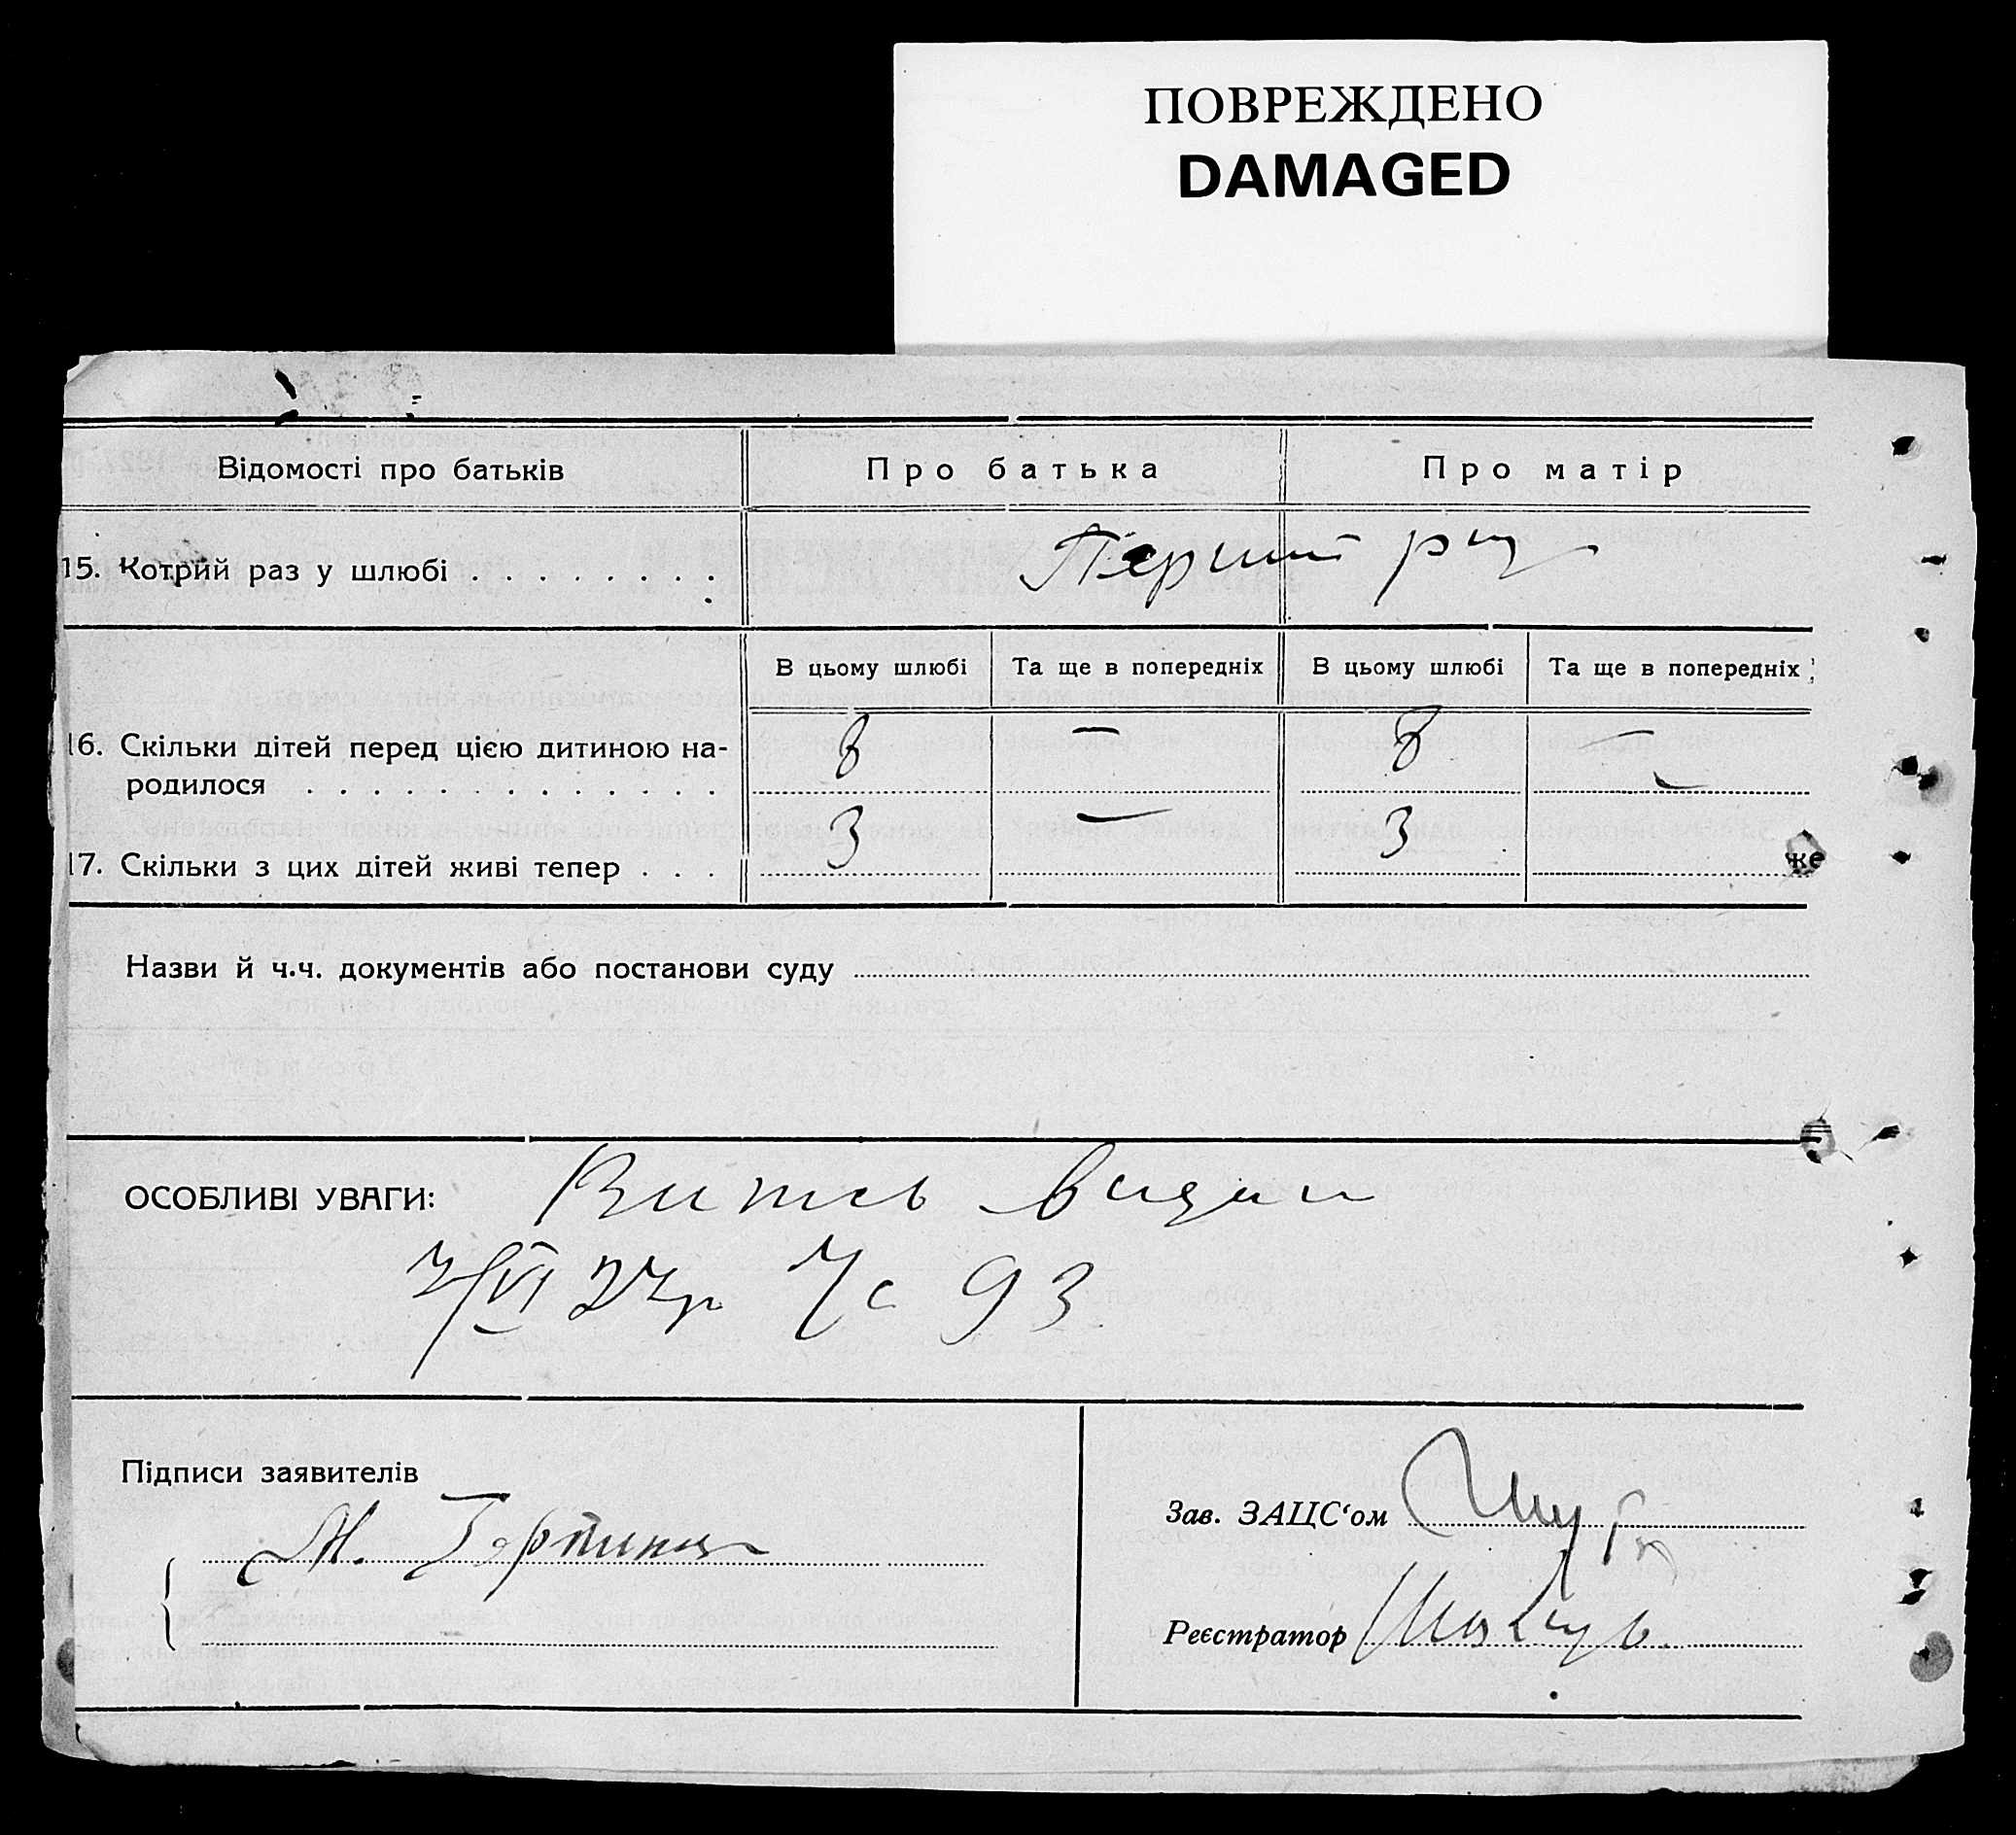 ПОВРЕЖДЕНО
DAMAGED
Відомості про батьків
Про батька
Про матір
15. Котрий раз у шлюбі . . . . . . . .
Перший раз
В цьому шлюбі
Та ще в попередніх
В цьому шлюбі
Та ще в попередніх
16. Скільки дітей перед цією дитиною на-
родилося . . . . . . . . . . . . .
8 — 8 —
17. Скільки з цих дітей живі тепер . . .
3 — 3 —
же
Назви й ч.ч. документів або постанови суду
ОСОБЛИВІ УВАГИ: Витяг видан
7/VI 27р 93
Підписи заявителів
М.
Зав. ЗАЦС‘ом
Реєстратор